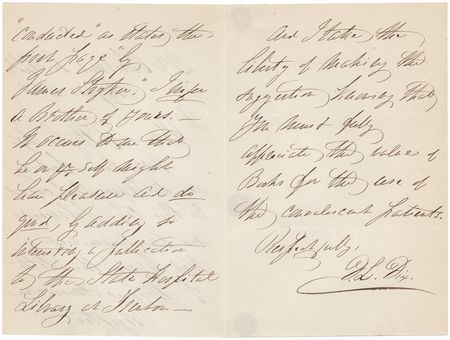 "conducted" as states the
front page" by
"James Hogben," I infer
a Brother of yours. —
It occurs to me that
he or yr self might
have pleasure and do
good, by adding so
interesting a publication
to the State Hospital
Library at Trenton —
And I take the
liberty of making the
suggestion knowing that
You must fully
appreciate the value of
Books for the use of
the convalescent patients.
Respectfully,
D. L. Dix.